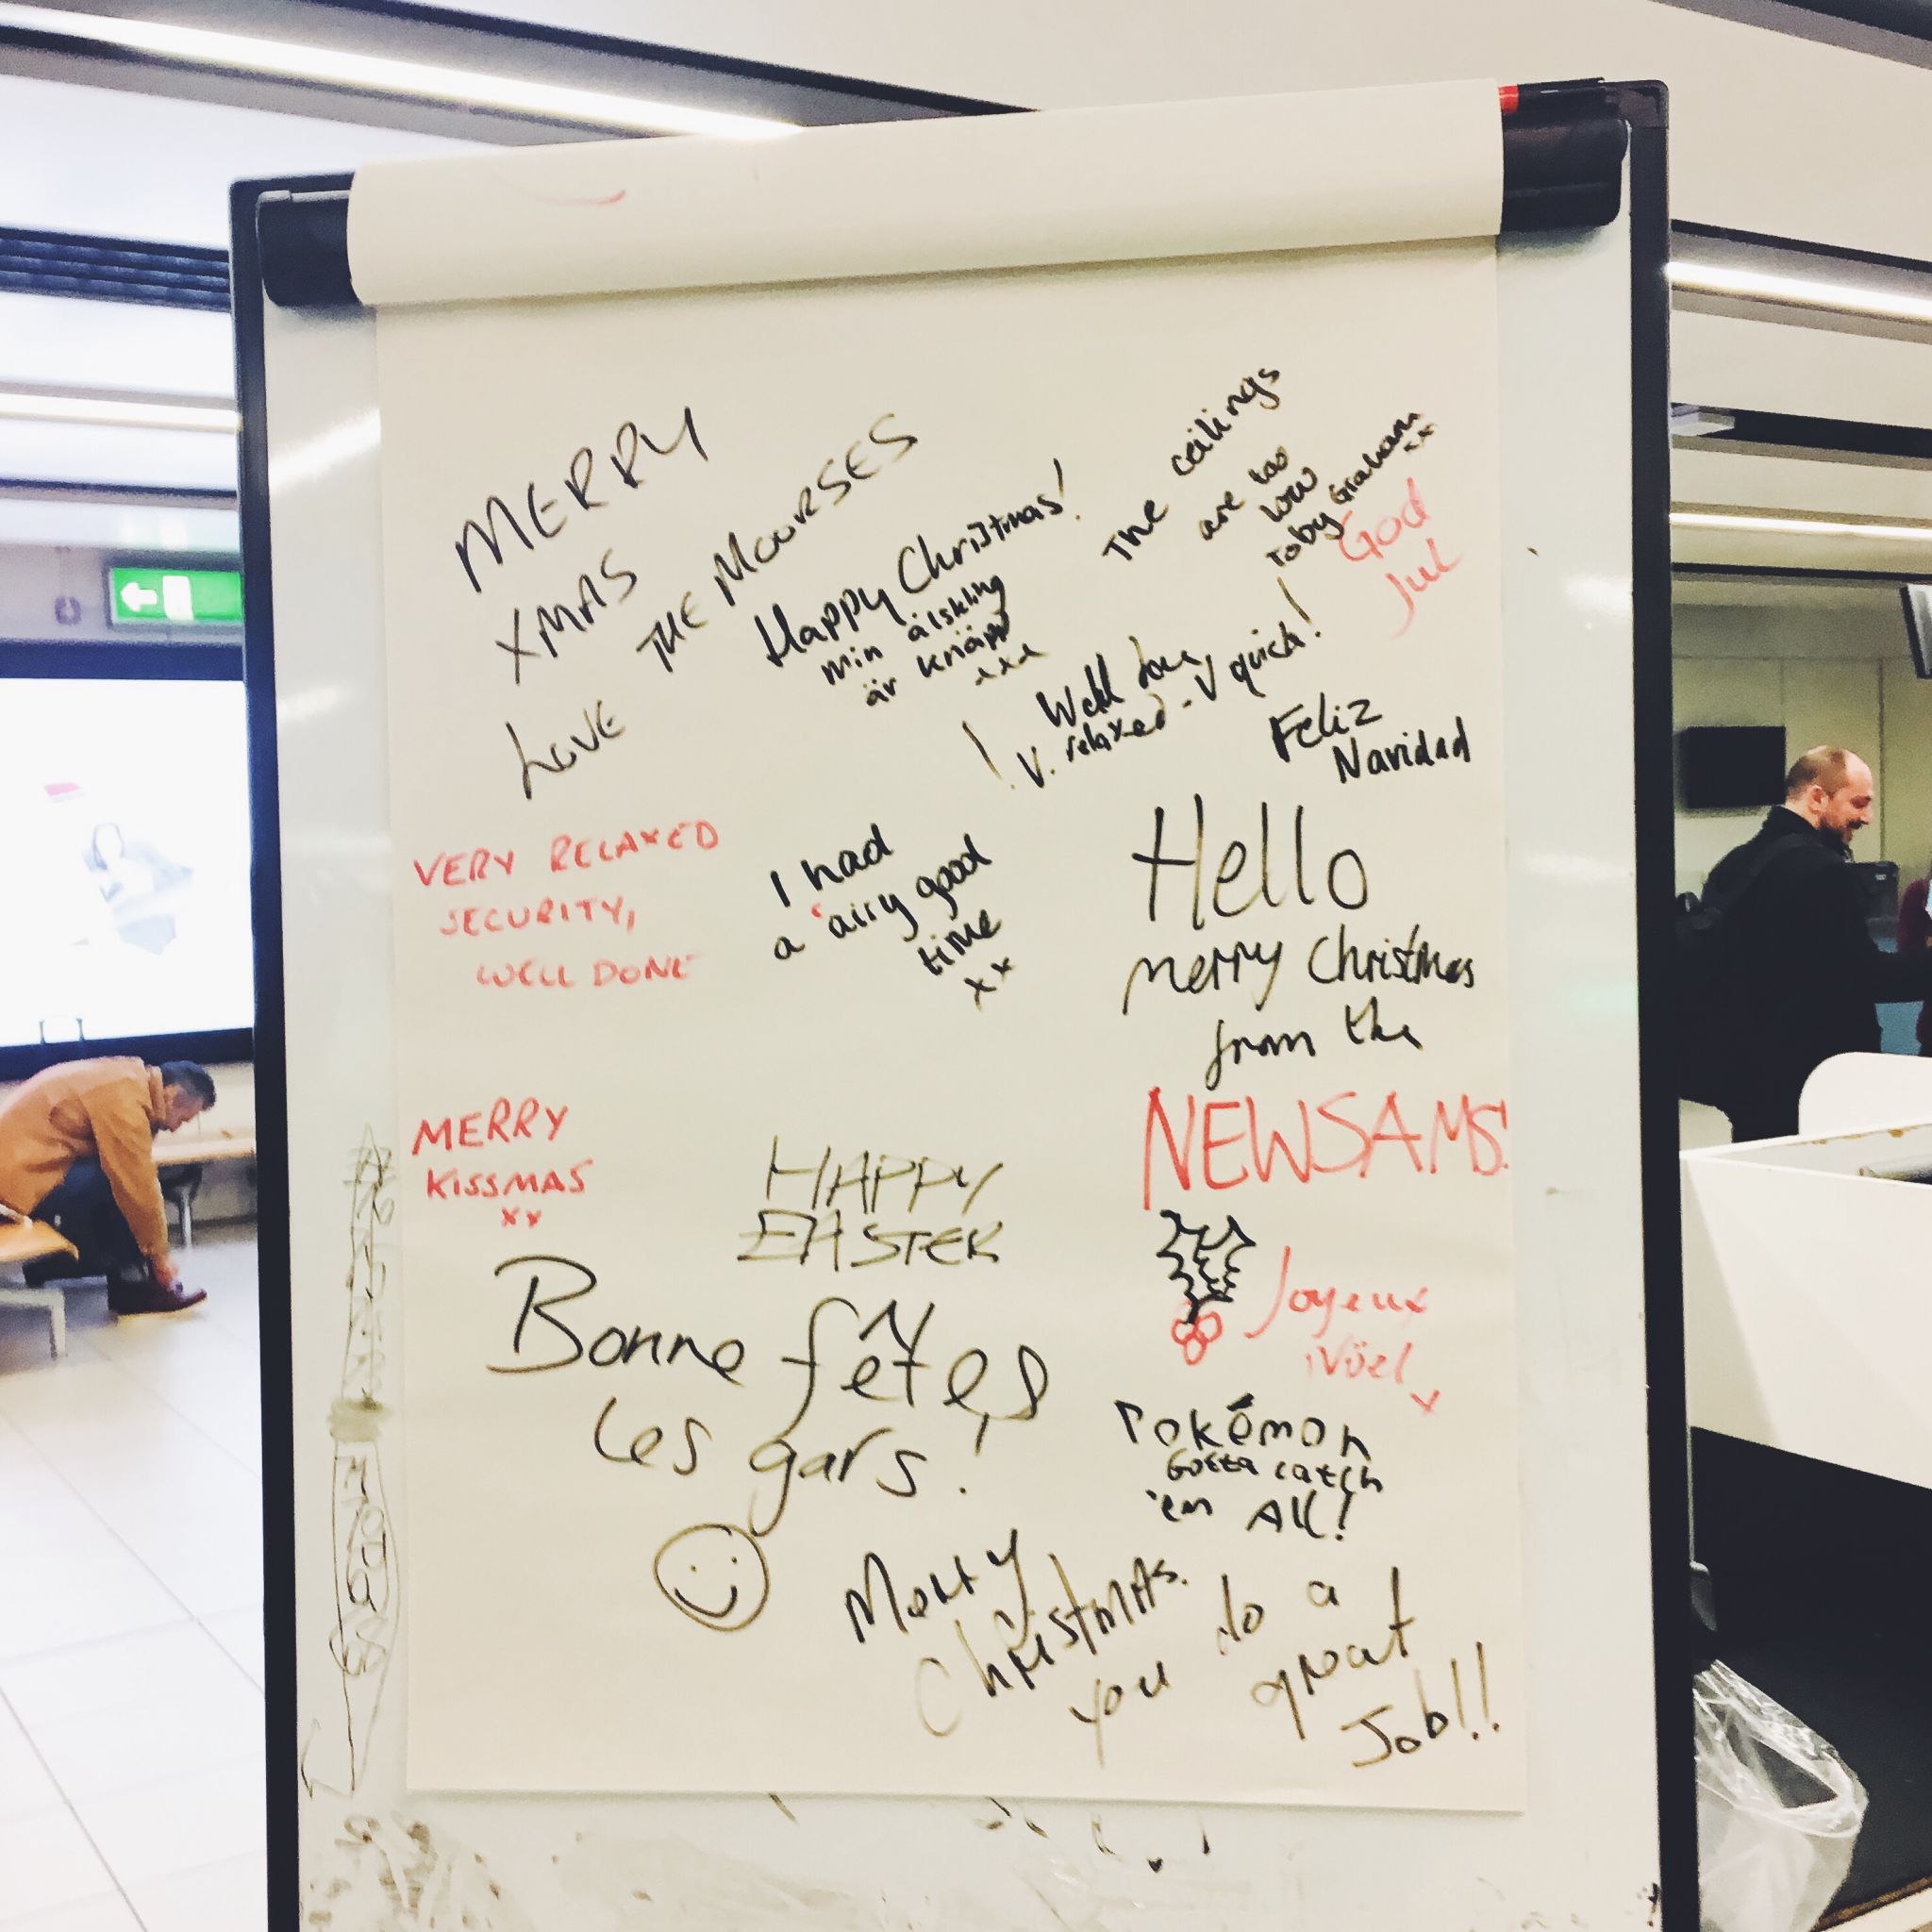 MERRY
XMAS
LOVE THE MOORSES
Happy Christmas!
min älskling
är knäpp
xxx
The ceilings
are too
low
Toby Graham
xx
God
Jul
! Well done
V. relaxed - V quick!
Feliz
Navidad
VERY RELAXED
SECURITY,
WELL DONE
I had
a 'airy good
time
xx
Hello
merry Christmas
from the
NEWSAMS!
MERRY
KISSMAS
xx
HAPPY
EASTER
Bonne fêtes
les gars!
Joyeux
Nöel
x
Pokémon
Gotta catch
'em All!
Merry
Christmas.
you do a
great
Job!!